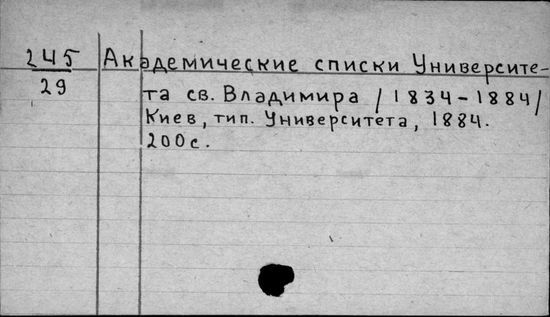 245 Академические списки Университе-
29
та св. Владимира /1834-1884/
Киев, тип. Университета, 1884.
200с.